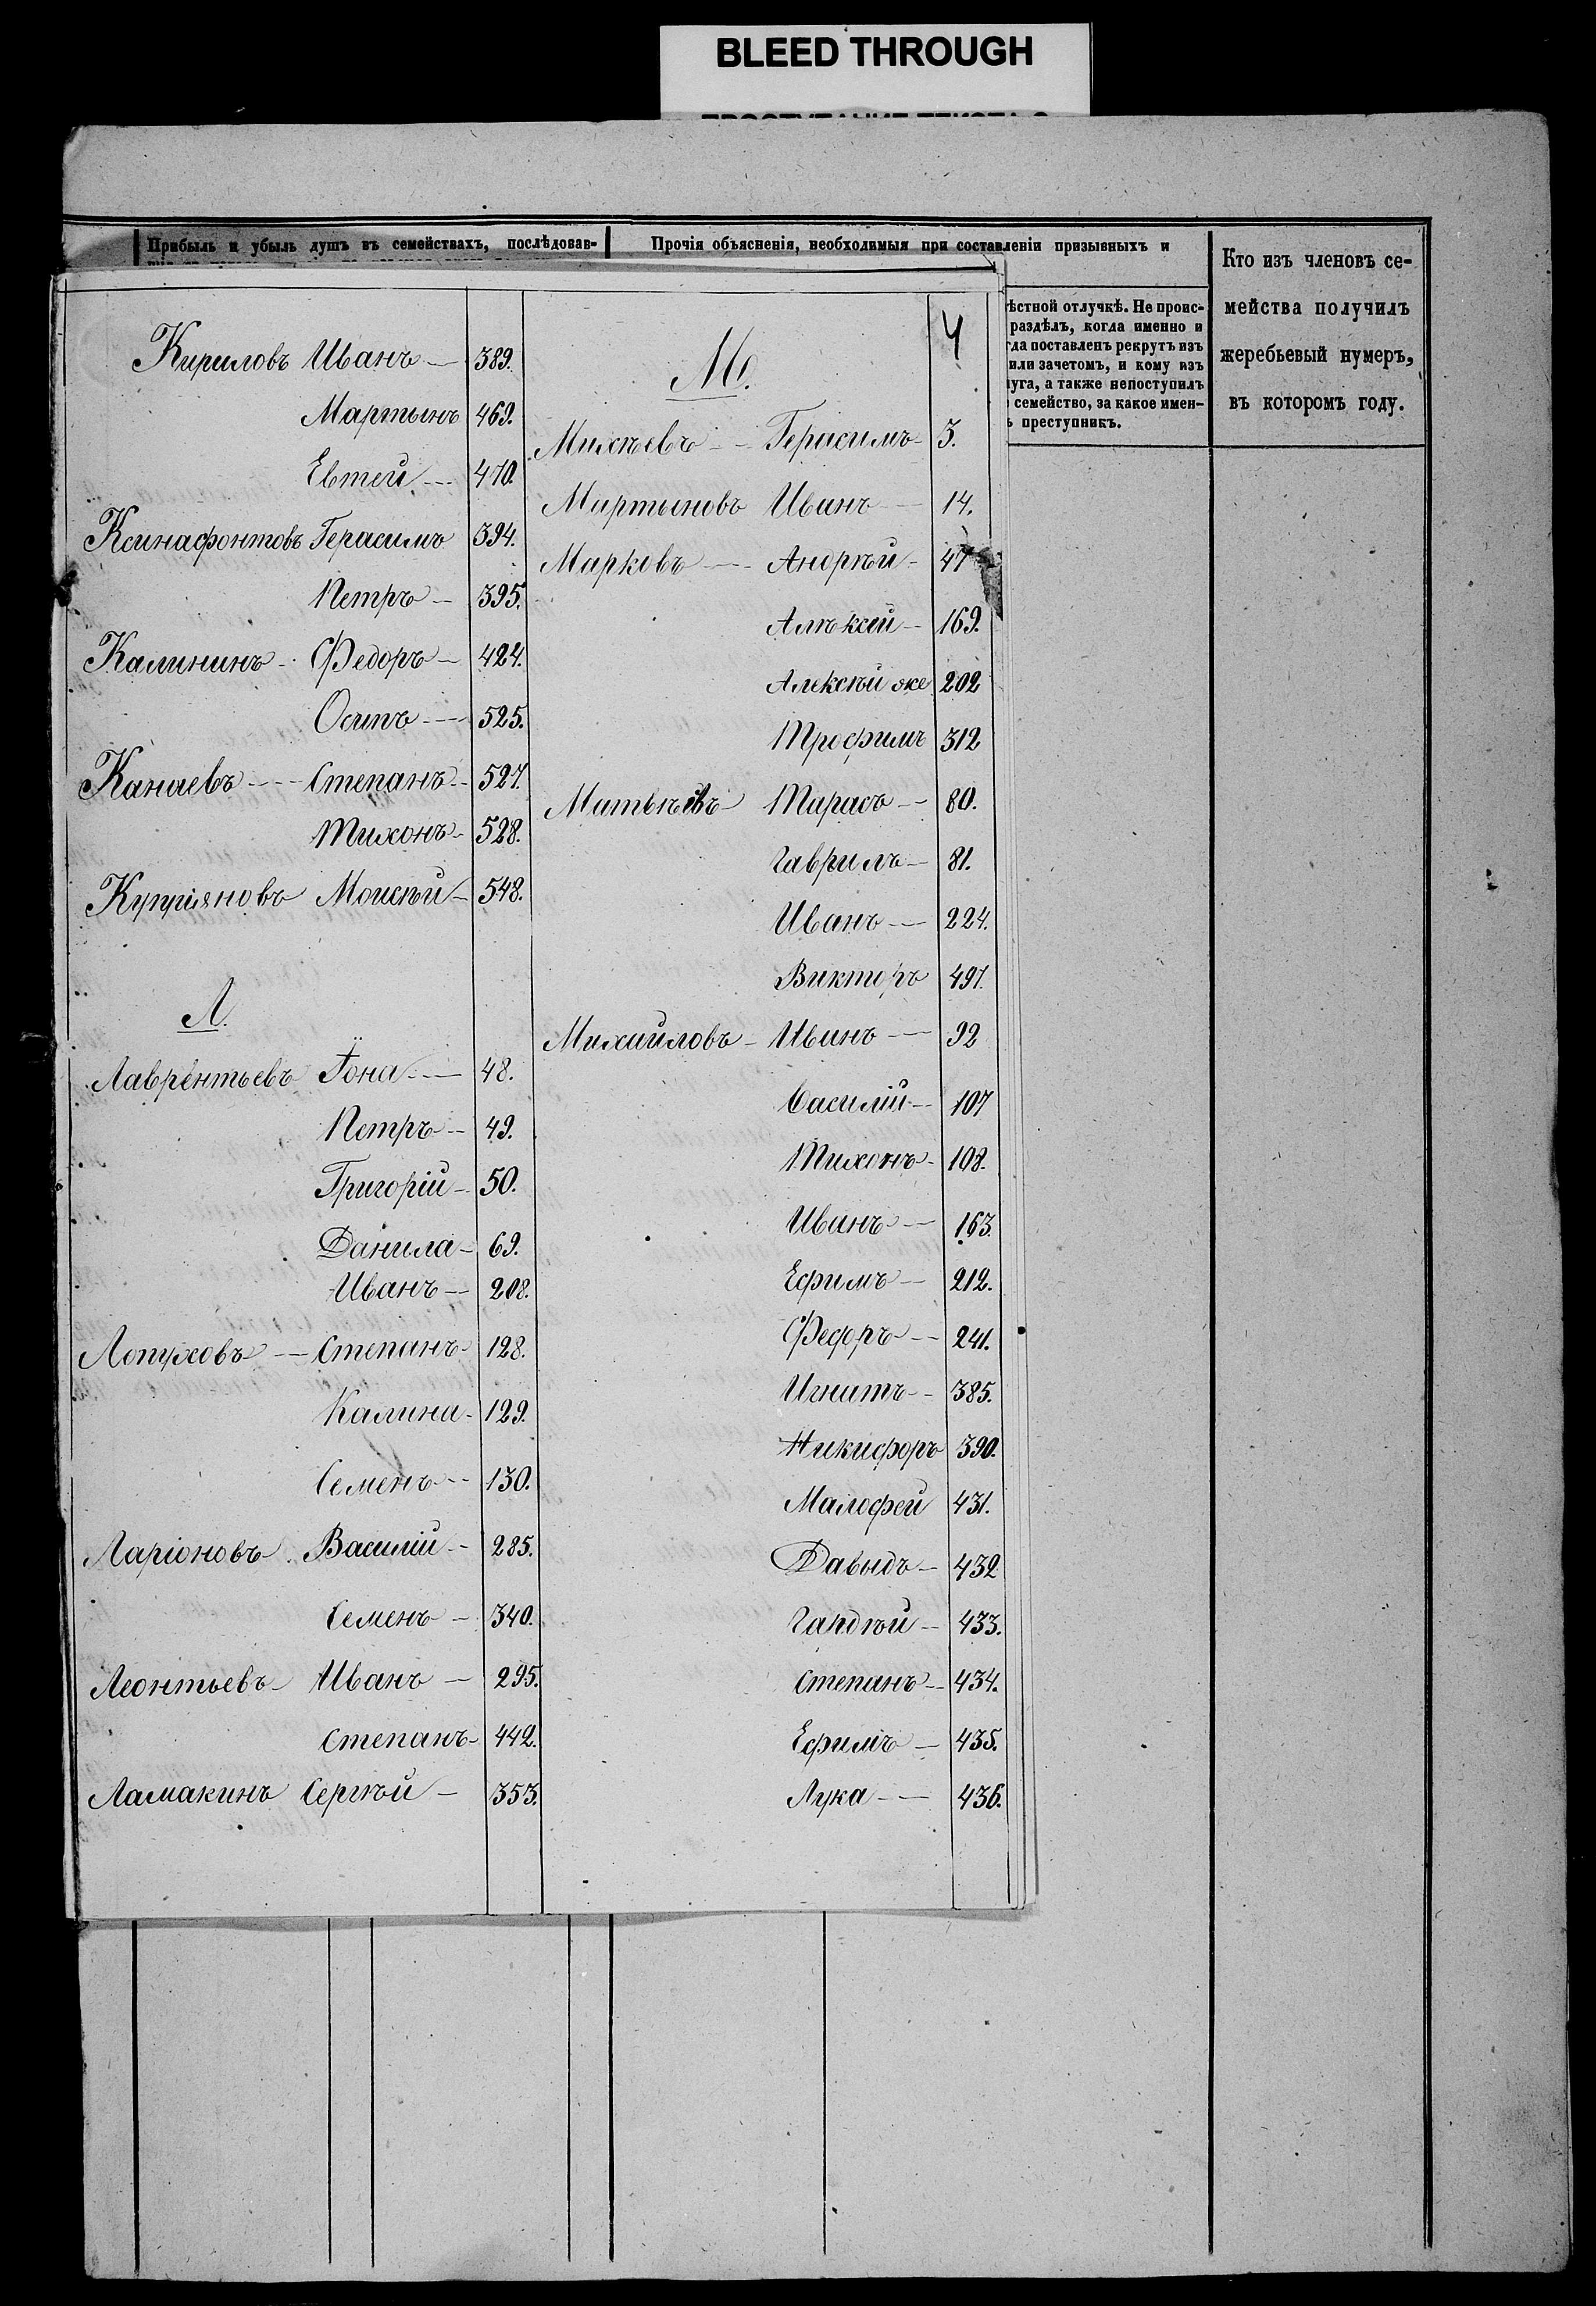 BLEED THROUGH
Прибыль и убыль душъ въ семействахъ, послѣдовав-
Прочія объясненія, необходимыя при составленіи призывныхъ и
Кто изъ членовъ се-
мейства получилъ
жеребьевый нумеръ,
въ которомъ году.
ѣстной отлучкѣ. Не проис-
раздѣлъ, когда именно и
гда поставленъ рекрутъ изъ
или зачетомъ, и кому изъ
луга, а также непоступилъ
семейство, за какое имен-
ъ преступникъ.
Кириловъ Иванъ — 389.
Мартынъ 469.
Евтей — 470.
Ксинафонтовъ Герасимъ 394.
Петръ — 395.
Калининъ - Федоръ — 424.
Осипъ — 525.
Канаевъ — Степанъ - 527.
Тихонъ - 528.
Купріяновъ Моисѣй - 548.
Л.
Лаврентьевъ Іона — 48.
Петръ — 49.
Григорій — 50.
Данила - 69.
Иванъ — 208.
Лопуховъ — Степанъ 128.
Калина - 129.
Семенъ — 130.
Ларіоновъ - Василій - 285.
Семенъ — 340.
Леонтьевъ - Иванъ — 295.
Степанъ - 442.
Ламакинъ Сергѣй — 353.
4
М.
Михѣевъ — Герасимъ - 3.
Мартыновъ Иванъ — 14.
Марковъ — Андрѣй - 47
Алѣксѣй - 169.
Алексѣй же 202
Трофимъ 312
Матвѣевъ - Тарасъ — 80.
Гаврилъ - 81.
Иванъ — 224.
Викторъ 497.
Михайловъ - Иванъ — 92
Василій — 107
Тихонъ - 108.
Иванъ — 163.
Ефимъ — 212.
Федоръ — 241.
Игнатъ - 385.
Никифоръ 390.
Малофей 431.
Давыдъ - 432
Гардѣй — 433.
Степанъ — 434.
Ефимъ — 435.
Лука — 436.